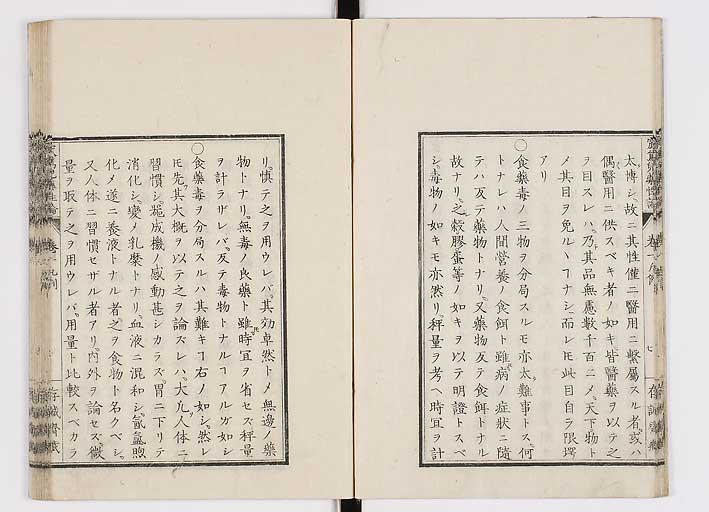 太博シ、故ニ其性僅ニ醫用ニ繫屬スル者、或ハ
偶〻醫用ニ供スベキ者ノ如キ皆醫藥ヲ以テ之
ヲ目スレハ、乃其品無慮數千百ニメ、天下ノ物ト
メ其目ヲ免ルヽヿナシ、而レ𪜈此目自ラ限壖
アリ
〇食藥毒ノ三物ヲ分局スルモ亦太難事トス、何
トナレハ人間營養ノ食餌ト雖病ノ症狀ニ隨
テハ反テ藥物トナリ、又藥物反テ食餌トナル
故ナリ、之ヲ穀膠蛋等ノ如キヲ以テ明證トスベ
シ、毒物ノ如キモ亦然リ、秤量ヲ考ヘ時冝ヲ計
リ、慎テ之ヲ用ウレバ、其効卓然トメ無邊ノ藥
物トナリ、無毒ノ良藥ト雖時冝ヲ省セス秤量
ヲ計ラザレバ、反テ毒物トナルヿアルガ如シ
〇食藥毒ヲ分局スルハ其難キヿ右ノ如シ、然レ
𪜈先其大概ヲ以テ之ヲ論スレハ、大凡人体ニ
習慣シ、麁成機ノ感動甚シカラズ、胃ニ下リテ
消化シ、變メ乳糜トナリ、血液ニ混和シ、氤氳煦
化メ遂ニ養液トナル者之ヲ食物ト名クベシ、
又人体ニ習慣セザル者アリ、内外ヲ論セス、微
量ヲ取テ之ヲ用ウレバ、用量ト比較スベカラ